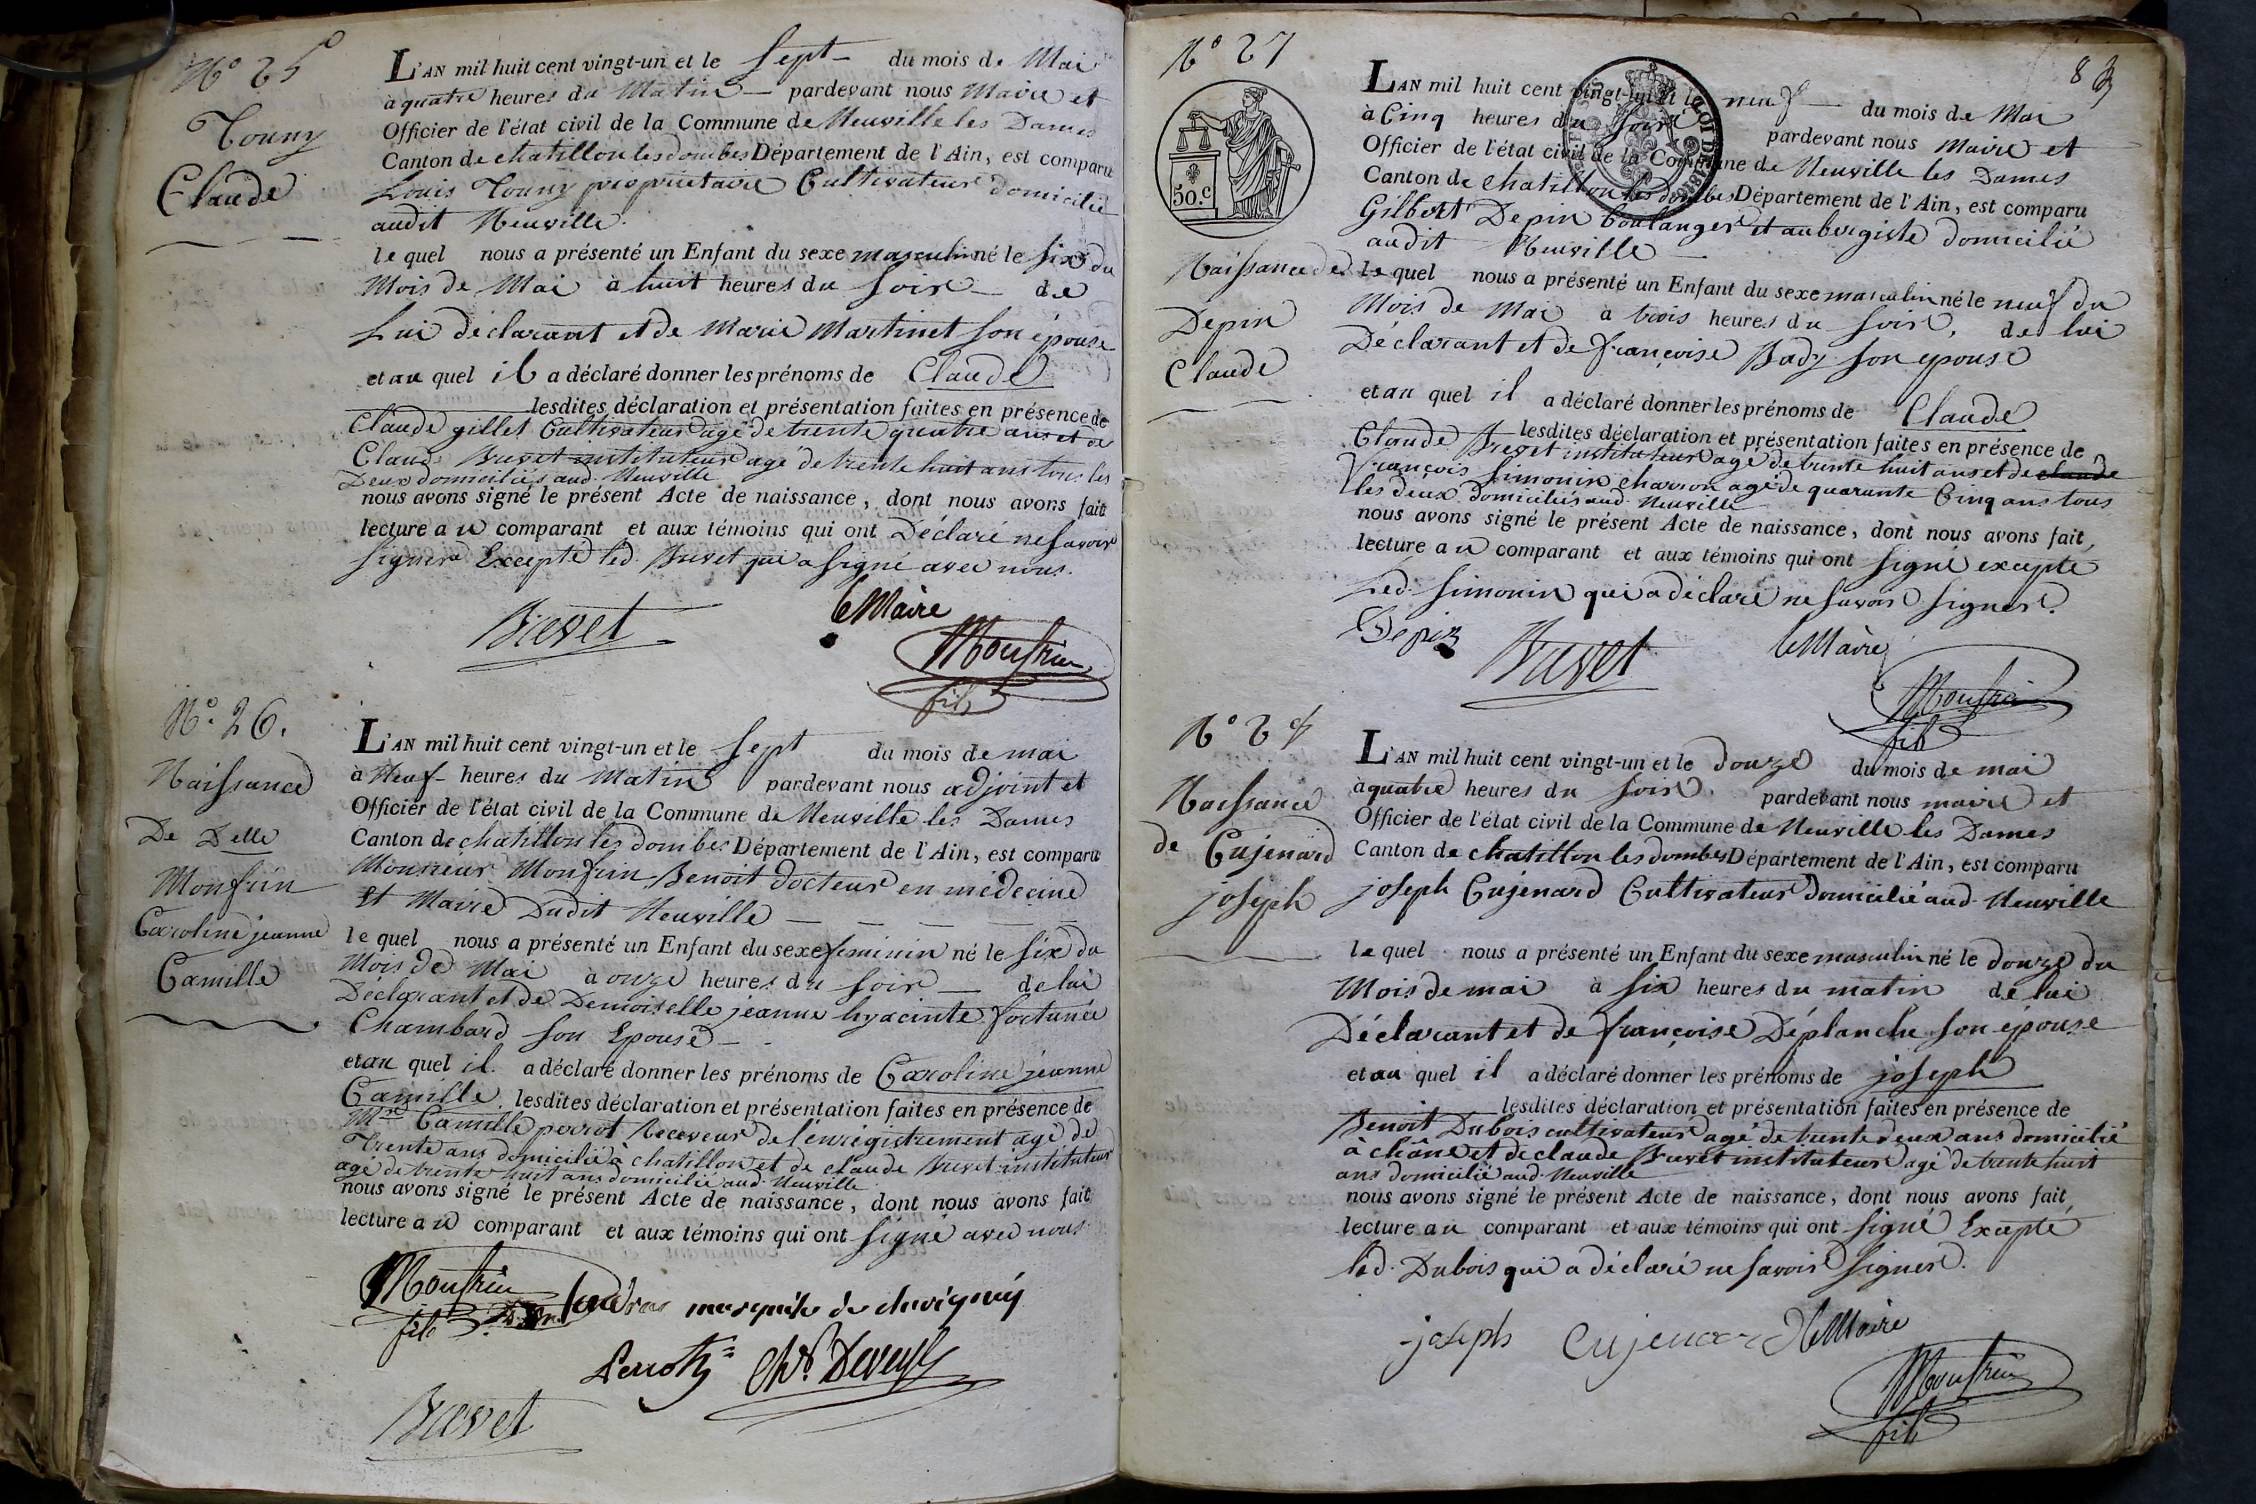 N° 25
Touny
Claude
L'AN mil huit cent vingt-un et le sept du mois de Mai
à quatre heures du Matin pardevant nous Maire et
Officier de l'état civil de la Commune de Neuville les Dames
Canton de chatillon les dombes Département de l'Ain, est comparu
Louis Touny propriétaire Cultivateur domicilié
audit Neuville.
le quel nous a présenté un Enfant du sexe masculin né le six du
Mois de Mai à huit heures du soir de
Lui déclarant et de Marie Martinet son épouse
et au quel il a déclaré donner les prénoms de Claude
lesdites déclaration et présentation faites en présence de
Claude gillet Cultivateur agé de trente quatre ans et de
Claude Brevet instituteur agé de trente huit ans tous les
Deux domiciliés aud. Neuville
nous avons signé le présent Acte de naissance, dont nous avons fait
lecture au comparant et aux témoins qui ont Déclaré ne savoir
signer Excepté led. Brevet qui a signé avec nous.
Brevet
le Maire
Monfrin
fils
N° 26.
Naissance
De Delle
Monfrin
Caroline jeanne
Camille
L'AN mil huit cent vingt-un et le sept du mois de mai
à Neuf heures du Matin pardevant nous adjoint et
Officier de l'état civil de la Commune de Neuville les Dames
Canton de chatillon les dombes Département de l'Ain, est comparu
Monsieur Monfrin Benoit docteur en médecine
Et Maire Dudit Neuville
le quel nous a présenté un Enfant du sexe feminin né le six du
Mois de Mai à onze heures du soir de lui
Déclarant et de Demoiselle jeanne hyacinte fortunée
Chambard son Epouse
et au quel il a déclaré donner les prénoms de Caroline jeanne
Camille lesdites déclaration et présentation faites en présence de
Mr Camille perrot Receveur de l'enregistrement agé de
Trente ans domicilié à chatillon et de claude Brevet instituteur
agé de trente huit ans domicilié aud. Neuville
nous avons signé le présent Acte de naissance, dont nous avons fait
lecture au comparant et aux témoins qui ont signé avec nous
Monfrin
fils
marquise de
Perrot
Brevet
N° 27
83
50.C
LOI DE 1816
Naissance de
Depin
Claude
L'AN mil huit cent vingt-un et le neuf du mois de Mai
à Cinq heures du soir pardevant nous Maire et
Officier de l'état civil de la Commune de Neuville les Dames
Canton de chatillon les dombes Département de l'Ain, est comparu
Gilbert Depin boulanger et aubergiste domicilié
audit Neuville
le quel nous a présenté un Enfant du sexe masculin né le neuf du
Mois de Mai à trois heures du soir, de lui
Déclarant et de françoise Bady son epouse
et au quel il a déclaré donner les prénoms de Claude
lesdites déclaration et présentation faites en présence de
Claude Brevet instituteur agé de trente huit ans et de claude
françois Simonin charron agé de quarante Cinq ans tous
les deux domiciliés aud. Neuville
nous avons signé le présent Acte de naissance, dont nous avons fait
lecture au comparant et aux témoins qui ont signé excepté
Led. Simonin qui a déclaré ne savoir signer.
Depin
Brevet
le Maire
Monfrin
fils
N° 28
Naissance
de Cujenard
joseph
L'AN mil huit cent vingt-un et le douze du mois de mai
à quatre heures du soir pardevant nous maire et
Officier de l'état civil de la Commune de Neuville les Dames
Canton de chatillon les dombes Département de l'Ain, est comparu
joseph Cujenard Cultivateur domicilié aud. Neuville
le quel nous a présenté un Enfant du sexe masculin né le douze du
Mois de mai à six heures du matin de lui
Déclarant et de françoise Déplanche son épouse
et au quel il a déclaré donner les prénoms de joseph
lesdites déclaration et présentation faites en présence de
Benoit Dubois cultivateur agé de trente deux ans domicilié
à châne et de claude Brevet instituteur agé de trente huit
ans domicilié aud. Neuville
nous avons signé le présent Acte de naissance, dont nous avons fait
lecture au comparant et aux témoins qui ont signé Excepté
led. Dubois qui a déclaré ne savoir signer.
joseph
le Maire
Monfrin
fils